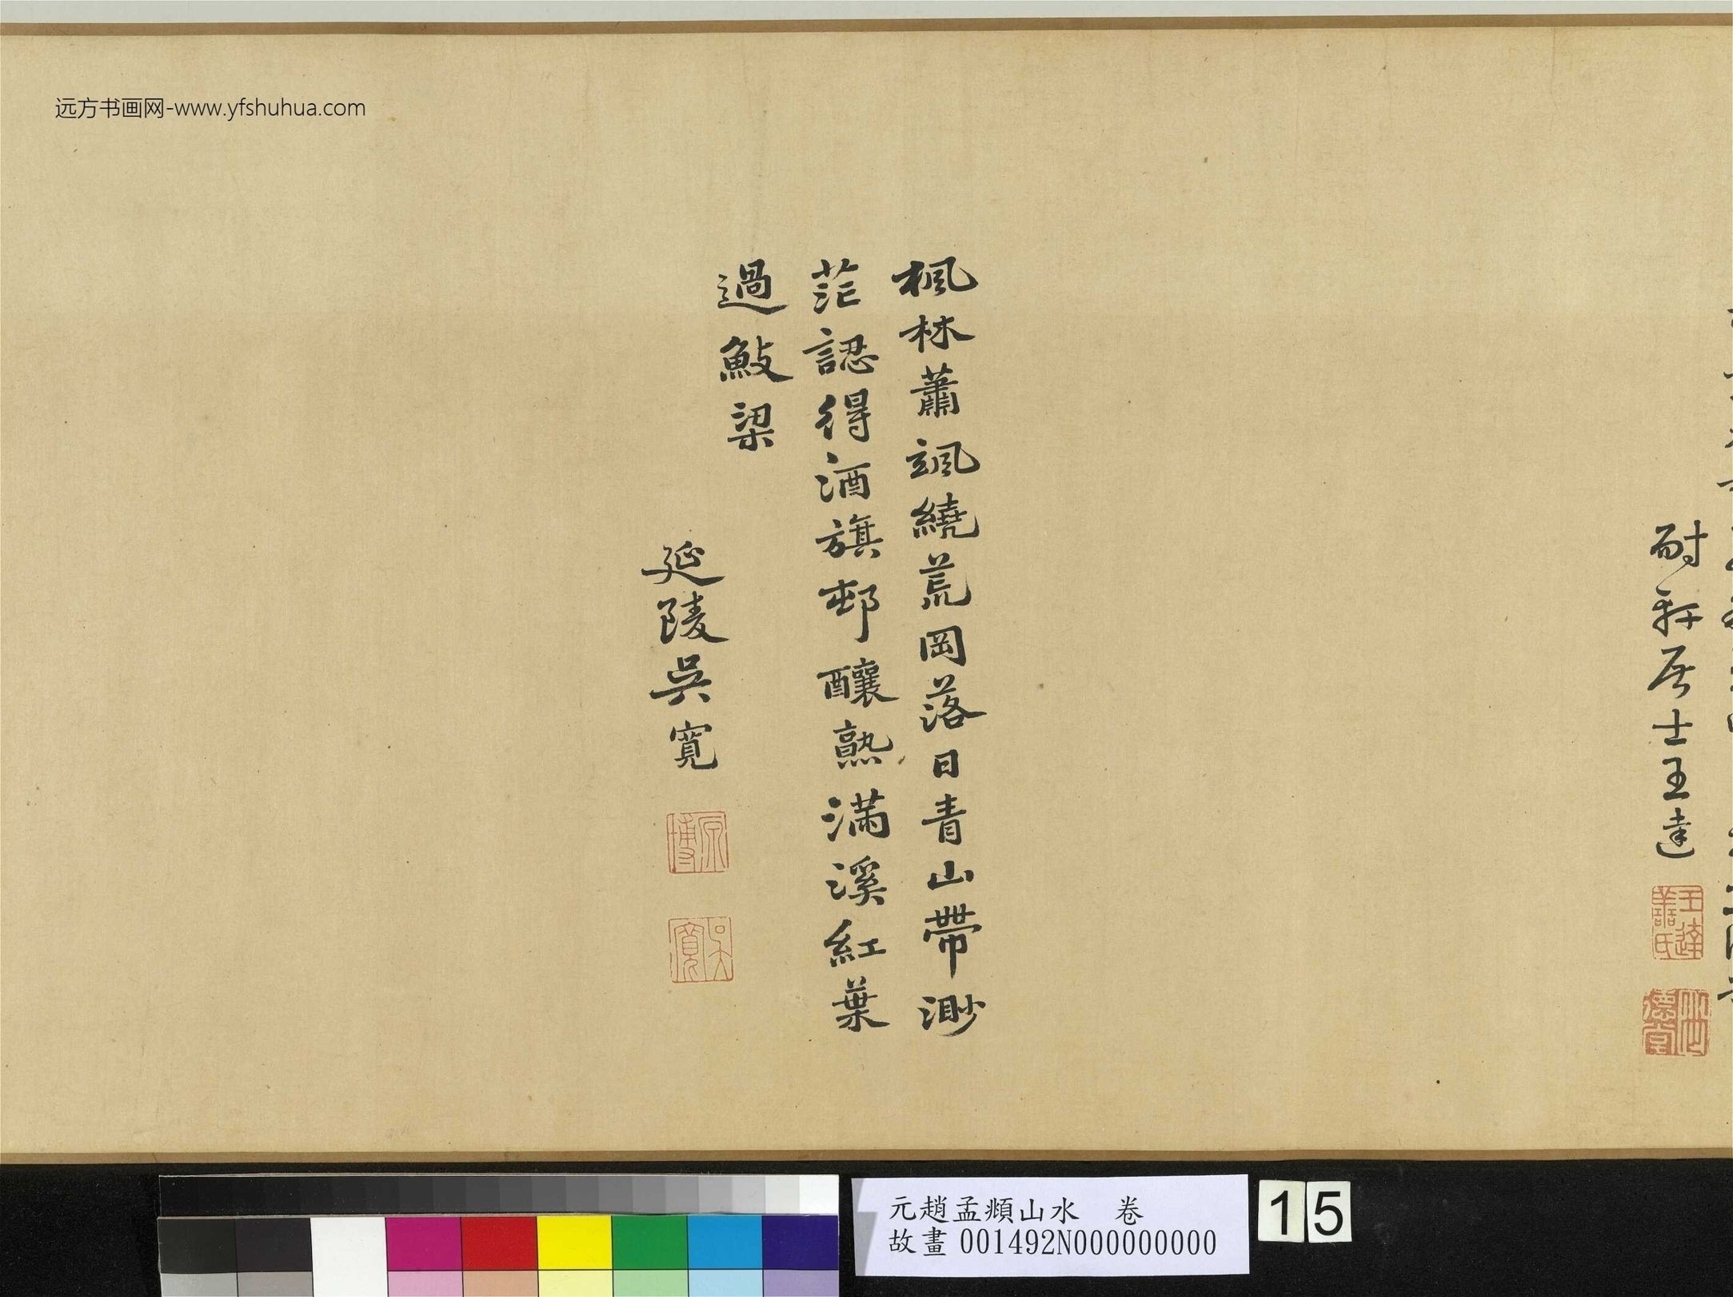 远方书画网-www.yfshuhua.com
耐軒居士王達
王達善氏
楓林蕭颯繞荒岡落日青山帶渺
茫認得酒旗邨釀熟滿溪紅葉
過魰梁
延陵吳寬
原博
吳寬
元趙孟頫山水　卷
故畫 001492N000000000
15